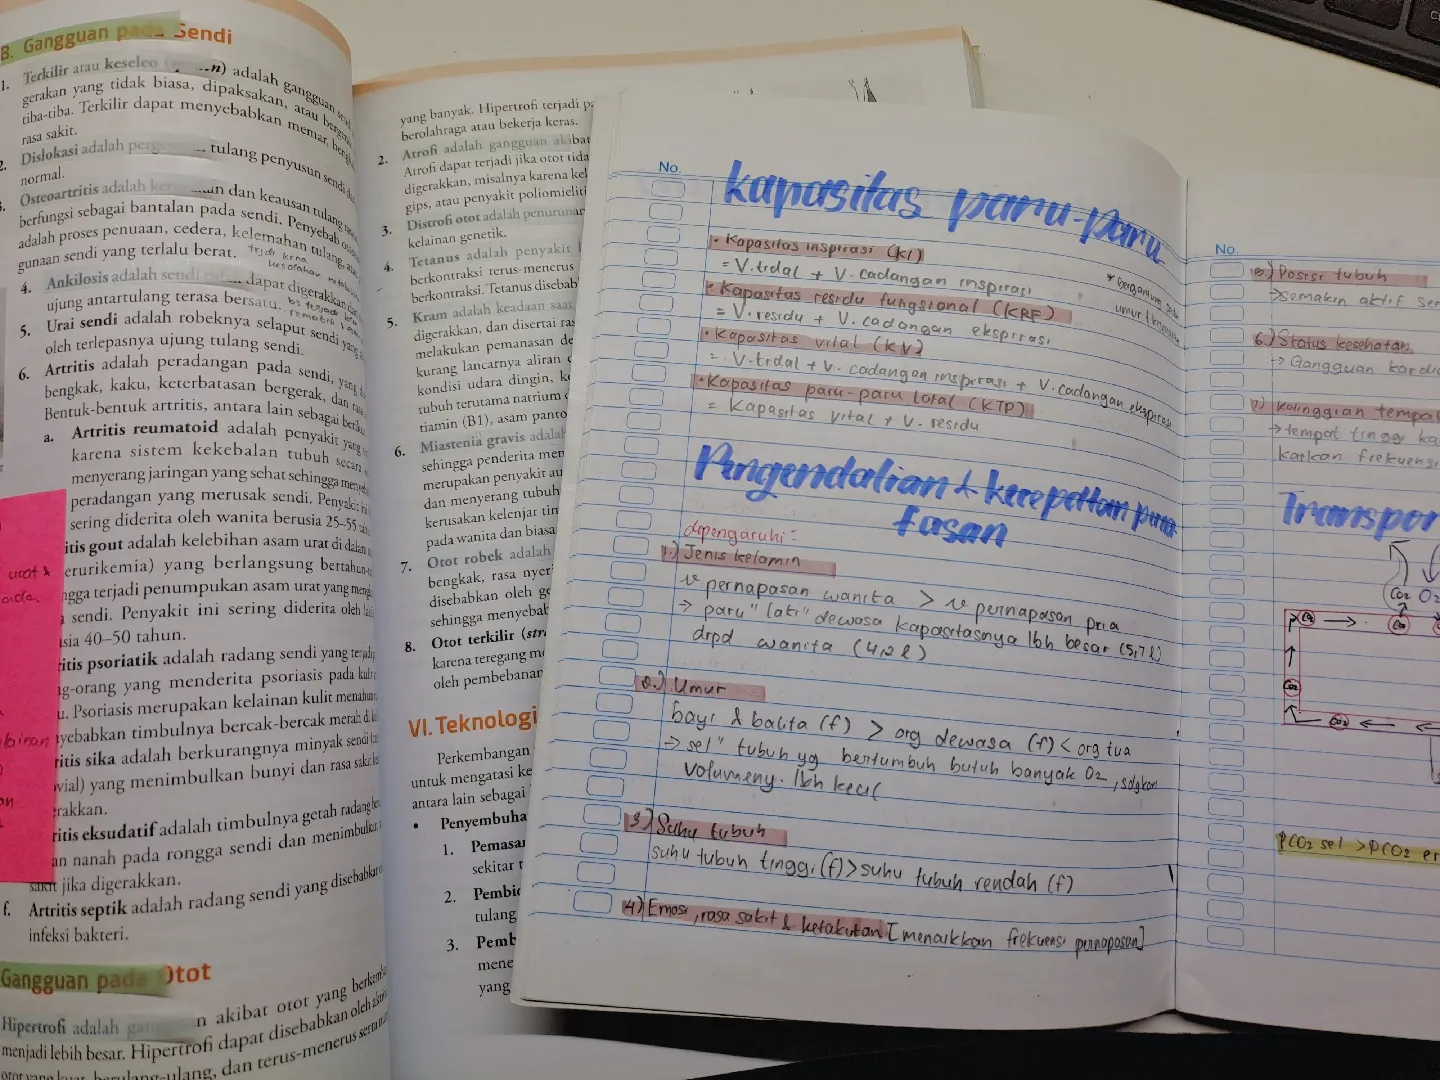 B. Gangguan pada Sendi
1. Terkilir atau keseleo adalah gangguan
gerakan yang tidak biasa, dipaksakan, atau
tiba-tiba. Terkilir dapat menyebabkan memar,
rasa sakit.
2. Dislokasi adalah tulang penyusun sendi
normal.
Osteoartritis adalah dan keausan tulang
berfungsi sebagai bantalan pada sendi. Penyebab
adalah proses penuaan, cedera, kelemahan tulang,
gunaan sendi yang terlalu berat.
trjdi krna
kesalahan
4. Ankilosis adalah sendi dapat digerakkan
ujung antartulang terasa bersatu.
5. Urai sendi adalah robeknya selaput sendi yang
oleh terlepasnya ujung tulang sendi.
6. Artritis adalah peradangan pada sendi, yang
bengkak, kaku, keterbatasan bergerak, dan
Bentuk-bentuk artritis, antara lain sebagai
a. Artritis reumatoid adalah penyakit yang
karena sistem kekebalan tubuh
menyerang jaringan yang sehat sehingga
peradangan yang merusak sendi. Penyakit ini
sering diderita oleh wanita berusia 25–55
itis gout adalah kelebihan asam urat di dalam
erurikemia) yang berlangsung
ngga terjadi penumpukan asam urat yang
sendi. Penyakit ini sering diderita oleh
sia 40–50 tahun.
itis psoriatik adalah radang sendi yang
g-orang yang menderita psoriasis pada
u. Psoriasis merupakan kelainan kulit
yebabkan timbulnya bercak-bercak merah di
itis sika adalah berkurangnya minyak sendi
vial) yang menimbulkan bunyi dan rasa sakit
erakkan.
itis eksudatif adalah timbulnya getah radang
an nanah pada rongga sendi dan menimbulkan
sakit jika digerakkan.
f. Artritis septik adalah radang sendi yang disebabkan
infeksi bakteri.
Gangguan pada Otot
Hipertrofi adalah akibat otot yang
menjadi lebih besar. Hipertrofi dapat disebabkan oleh
berulang-ulang, dan terus-menerus
yang banyak. Hipertrofi terjadi
berolahraga atau bekerja keras.
2. Atrofi adalah gangguan akibat
Atrofi dapat terjadi jika otot tida
digerakkan, misalnya karena kel
gips, atau penyakit poliomieliti
3. Distrofi otot adalah penurunan
kelainan genetik.
4. Tetanus adalah penyakit
berkontraksi terus-menerus
berkontraksi. Tetanus disebab
5. Kram adalah keadaan saat
digerakkan, dan disertai ras
melakukan pemanasan de
kurang lancarnya aliran
kondisi udara dingin, ke
tubuh terutama natrium
tiamin (B1), asam panto
6. Miastenia gravis adalah
sehingga penderita men
merupakan penyakit au
dan menyerang tubuh
kerusakan kelenjar tin
pada wanita dan biasa
7. Otot robek adalah
bengkak, rasa nyer
disebabkan oleh ge
sehingga menyebab
8. Otot terkilir (str
karena teregang me
oleh pembebanan
VI. Teknologi
Perkembangan
untuk mengatasi ke
antara lain sebagai
• Penyembuha
1. Pemasa
sekitar
2. Pembi
tulang
3. Pemb
mene
yang
No.
kapasitas paru-paru
• Kapasitas inspirasi (KI)
= V.tidal + V. cadangan inspirasi
• Kapasitas residu fungsional (KRF)
= V.residu + V. cadangan ekspirasi
• Kapasitas vital (KV)
= V.tidal + V. cadangan inspirasi + V.cadangan ekspirasi
• Kapasitas paru-paru total (KTP)
= Kapasitas vital + V. residu
Pengendalian & kecepatan perna
fasan
dipengaruhi :
1.) Jenis kelamin
pernapasan wanita > pernapasan pria
→ paru" laki" dewasa kapasitasnya lbh besar (5,7 l)
drpd wanita (4,2 l)
2.) Umur
bayi & balita (f) > org dewasa (f) < org tua
→ sel" tubuh yg bertumbuh butuh banyak O2, sdgkan
volumeny. lbh kecil
3) Suhu tubuh
suhu tubuh tinggi (f) > suhu tubuh rendah (f)
4) Emosi, rasa sakit & ketakutan [menaikkan frekuensi pernapasan]
No.
5.) Posisi tubuh
→ semakin aktif
6.) Status kesehatan
→ Gangguan kardi
7) Ketinggian tempat
→ tempat tinggi
katkan frekuensi
Transpor
CO2 O2
CO2
CO2
PCO2 sel > PCO2